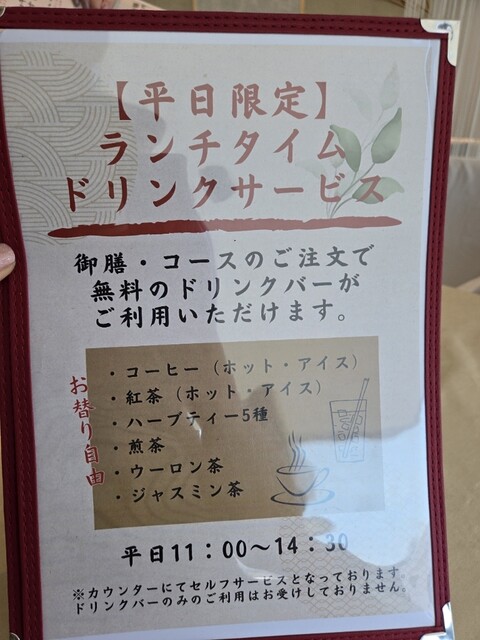 【平日限定】
ランチタイム
ドリンクサービス
御膳・コースのご注文で
無料のドリンクバーが
ご利用いただけます。
お替り自由
・コーヒー（ホット・アイス）
・紅茶（ホット・アイス）
・ハーブティー5種
・煎茶
・ウーロン茶
・ジャスミン茶
平日11：00〜14：30
※カウンターにてセルフサービスとなっております。
ドリンクバーのみのご利用はお受けしておりません。